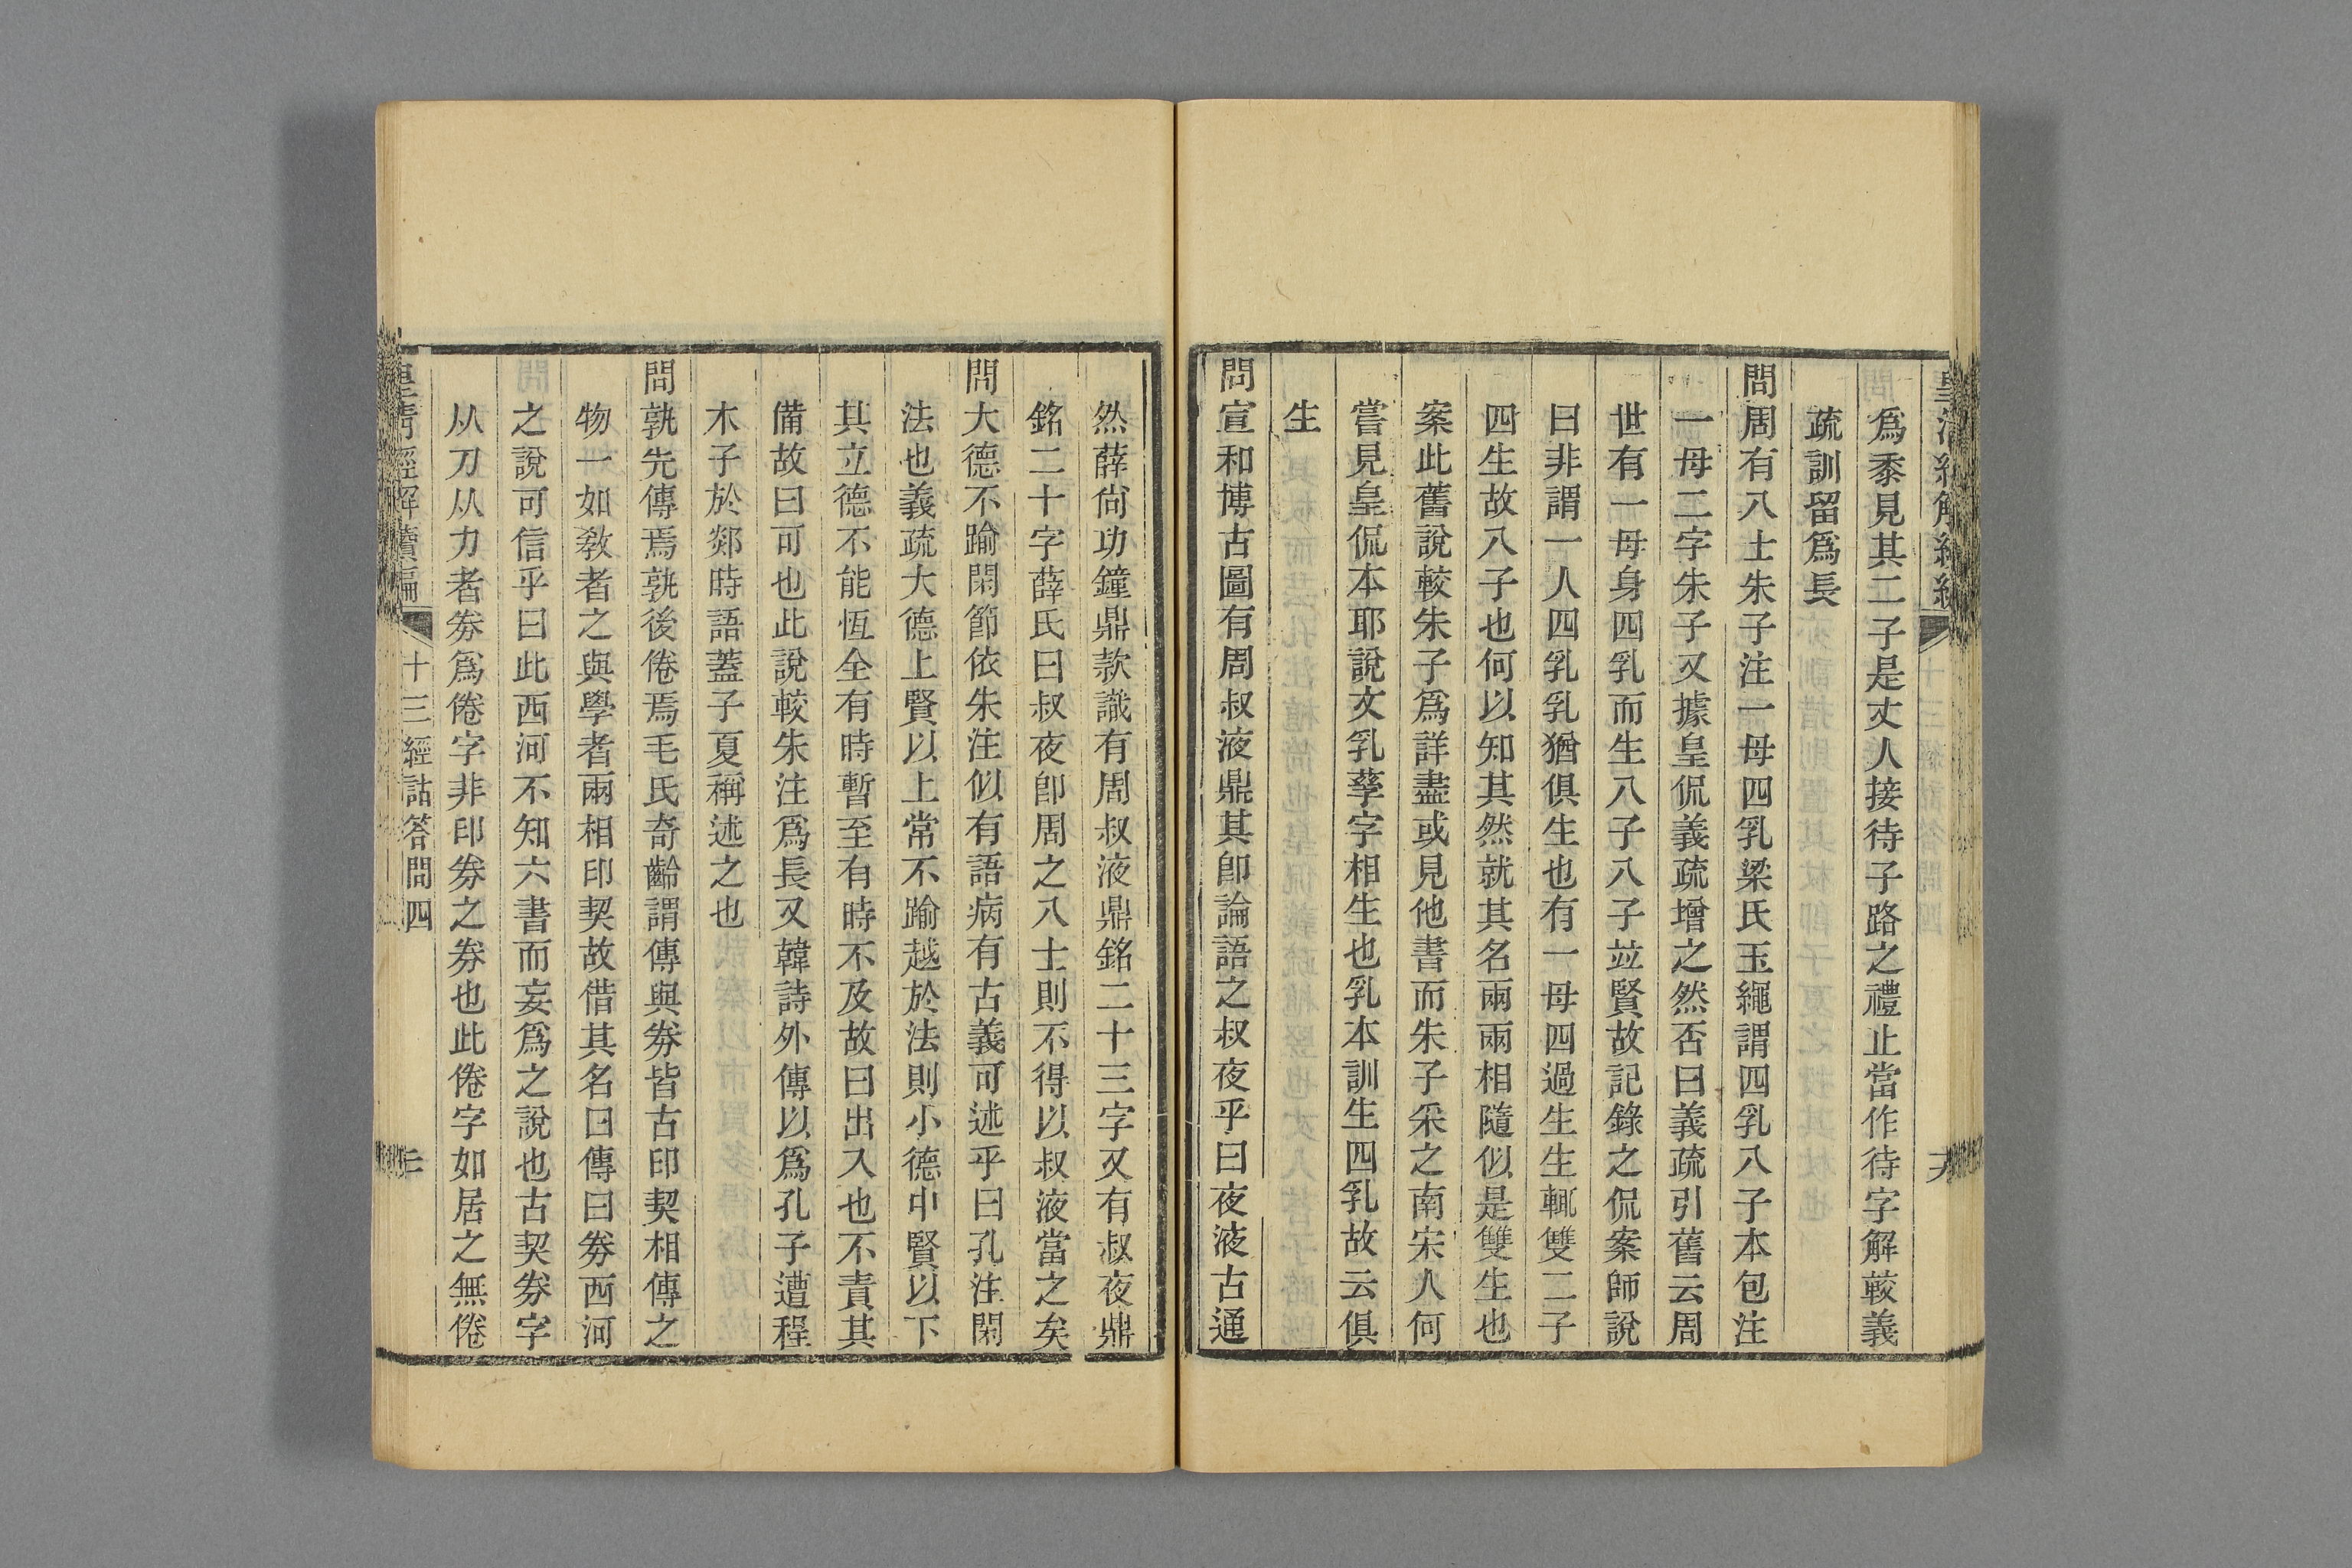 爲黍見其二子是丈人接待子路之禮止當作待字解較義
疏訓留爲長
問周有八士朱子注一母四乳梁氏玉繩謂四乳八子本包注
一母二字朱子又據皇侃義疏增之然否曰義疏引舊云周
世有一母身四乳而生八子八子竝賢故記錄之侃案師說
曰非謂一人四乳乳猶俱生也有一母四過生生輒雙二子
四生故八子也何以知其然就其名兩兩相隨似是雙生也
案此舊說較朱子爲詳盡或見他書而朱子采之南宋人何
嘗見皇侃本耶說文乳孳字相生也乳本訓生四乳故云俱
生
問宣和博古圖有周叔液鼎其卽論語之叔夜乎曰夜液古通
然薛尙功鐘鼎款識有周叔液鼎銘二十三字又有叔夜鼎
銘二十字薛氏曰叔夜卽周之八士則不得以叔液當之矣
問大德不踰閑節依朱注似有語病有古義可述乎曰孔注閑
法也義疏大德上賢以上常不踰越於法則小德中賢以下
其立德不能恆全有時暫至有時不及故曰出入也不責其
備故曰可也此說較朱注爲長又韓詩外傳以爲孔子遭程
木子於郯時語蓋子夏稱述之也
問孰先傳焉孰後倦焉毛氏奇齡謂傳與券皆古印契相傳之
物一如教者之與學者兩相印契故借其名曰傳曰券西河
之說可信乎曰此西河不知六書而妄爲之說也古契券字
从刀从力者券爲倦字非印券之券也此倦字如居之無倦
皇清經解續編 十三經詁答問四